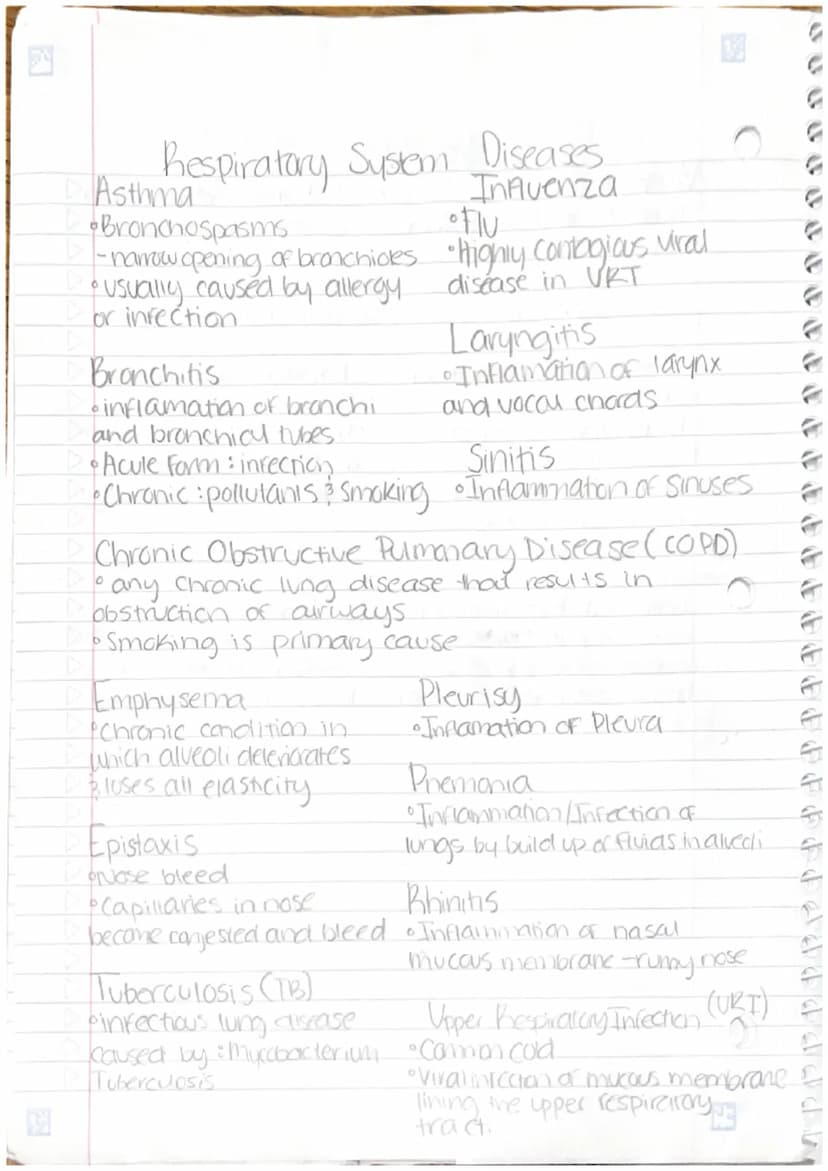 Respiratory System Diseases
Asthma
•Bronchospasms
-narrow opening of bronchioles
•usually caused by allergy
or infection
Bronchitis
•inflamation of bronchi
and bronchical tubes
•Acute Form: infection
•Chronic: pollutants & smoking
Influenza
•Flu
•Highly Contagious Viral
disease in URT
Laryngitis
•Inflamation of larynx
and vocal chords
Sinitis
•Inflammation of sinuses
Chronic Obstructive Pulmonary Disease (COPD)
•any Chronic lung disease that results in
obstruction of airways
•Smoking is primary cause
Emphysema
•Chronic condition in
which alveoli deteriorates
& loses all elasticity
Epistaxis
•Nose bleed
•Capillaries in nose
become congested and bleed
Tuberculosis (TB)
•infectious lung disease
caused by: Mycobacterium
Tuberculosis
Pleurisy
•Inflamation of Pleura
Pnemonia
•Inflammation/Infection of
lungs by build up of fluids in alveoli
Rhinitis
•Inflammation of nasal
mucous membrane -runny nose
Upper Respiratory Infection (URI)
•Common cold
•Viral infection of mucous membrane
lining the upper respiratory
tract.